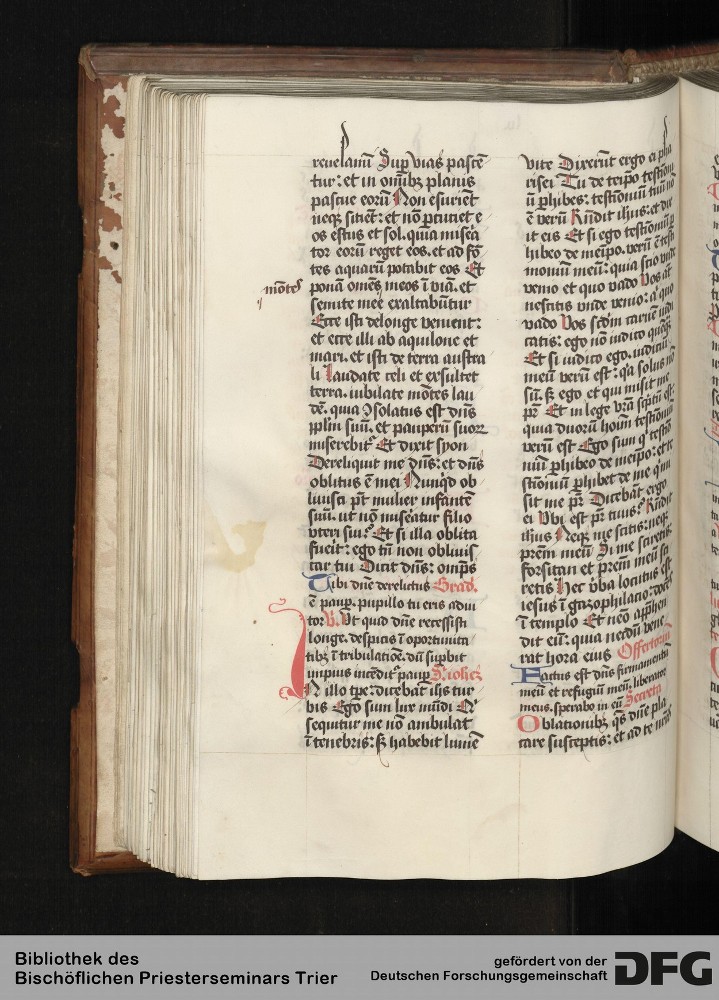 reuelamı̄ Sup̄ vias pascē
tur: et in om̄ibȝ planis
pascue eorū Non esuriēt
neqȝ sitiēt: et nō ꝑcutiet e
os estus et sol. quia misēa
tor eorū reget eos. et ad fō
tes aquarū potabit eos Et
mōtes
ponā om̄es meos ī viā. et
semite mee exaltabūtur
Ecce isti delonge venient:
et ecce illi ab aquilone et
mari. et isti de terra austra
li Laudate celi et exsultet
terra. iubilate mōtes lau
dē. quia ꝯsolatus est dn̄s
pplm̄ suū. et pauperū suoꝝ
miserebit᷑ Et dixit syon
Dereliquit me dn̄s: et dn̄s
oblitus ē mei Nunqͥd ob
liuisci pt̄ mulier infantē
suū. ut nō misēatur filio
vteri sui? Et si illa oblita
fuerit: ego tn̄ non obliuis
car tui Dicit dn̄s: omp̄s
Tibi dn̄e derelictus Grad.
ē paup̄. pupillo tu eris adiu
tor V. Vt quid dn̄e recessisti
longe. despicis ī oportunita
tibȝ ī tribulatiōe. dū suꝑbit
impius incēdit᷑ paup̄ S. iohēȝ
IN illo tp̄e: dicebat ih̄s tur
bis Ego sum lux mūdi Qͥ
sequitur me nō ambulat
ī tenebris: sꝫ habebit lumē
vite Dixerūt ergo ei pha
risei Tu de teip̄o testīoni
ū ꝑhibes: testīoniū tuū nō
ē verū Rn̄dit ih̄us: et dix
it eis Et si ego testīoniū ꝑ
hibeo de meip̄o. verū ē testī
moniū meū: quia scio vnde
venio et quo vado Vos aūt
nescitis vnde venio: a᷑ quo
vado Vos scd̄m carnē iudi
catis: ego nō iudico quēqȝ
Et si iudico ego. iudiciū
meū verū est: qͣ solus nō
sū. sꝫ ego. et qui misit me
pr̄ Et in lege vr̄a scp̄tū est
quia duorū hoīm testīoniū
verū est Ego sum qͥ testīo
niū ꝑhibeo de meip̄o: et te
stīoniū ꝑhibet de me qͥ mi
sit me pr̄ Dicebāt ergo
ei Vbi est pr̄ tuus? Rn̄dit
ih̄us Neqȝ me scitis: neqȝ
prēm meū Si me sciretis:
forsitan et prēm meū sci
retis Hec v̄ba locutus est
iesus ī gazophilacio: docēs
ī templo Et nēo appħen
dit eū. quia necdū vene
rat hora eius Offertoriū
Factus est dn̄s firmamentū
meū et refugiū meū. liberator
meus. sperabo in eū Secreta
Oblationibȝ qs̄ dn̄e pla
care susceptis: et ad te nr̄as
Bibliothek des
Bischöflichen Priesterseminars Trier
gefördert von der
Deutschen Forschungsgemeinschaft
DFG